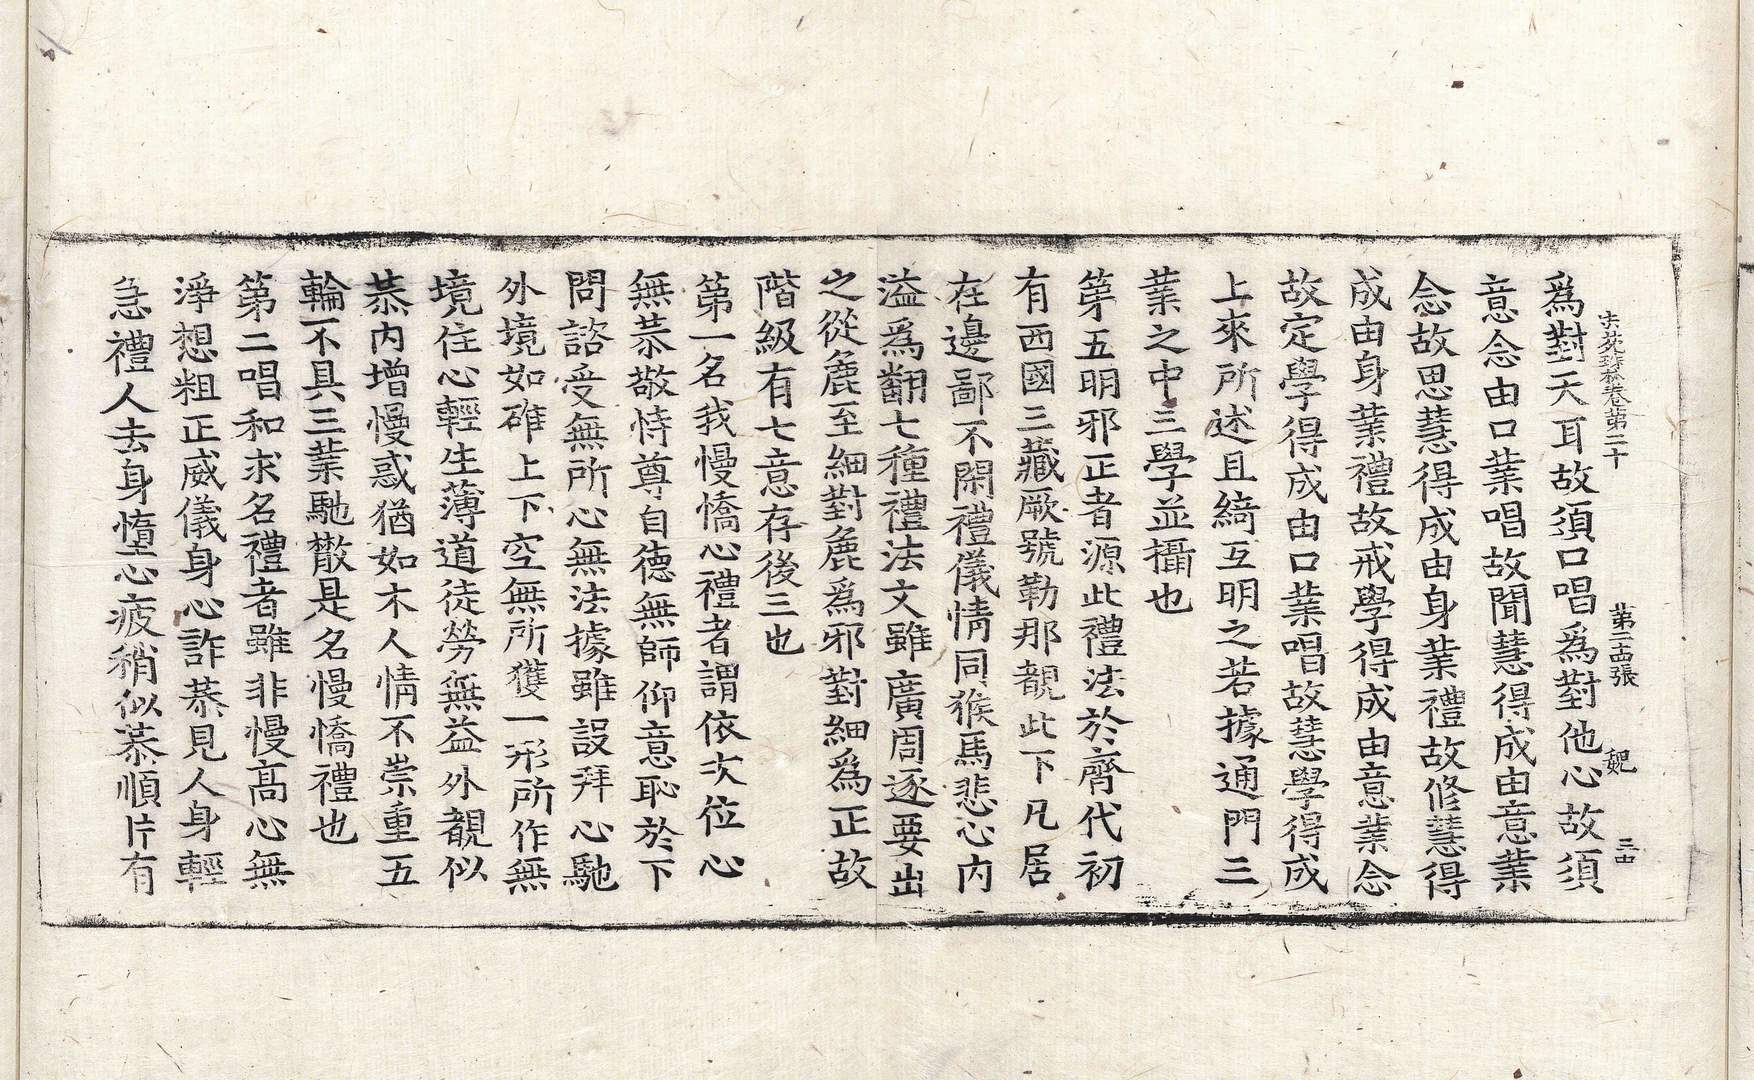 法苑珠林卷第二十 第二十四張 䙝 三十四
爲對天耳故須口唱爲對他心故須
意念由口業唱故聞慧得成由意業
念故思慧得成由身業禮故修慧得
成由身業禮故戒學得成由意業念
故定學得成由口業唱故慧學得成
上來所述且綺互明之若據通門三
業之中三學並攝也
第五明邪正者源此禮法於齊代初
有西國三藏厥號勒那覩此下凡居
在邊鄙不閑禮儀情同猴馬悲心内
溢爲翻七種禮法文雖廣周逐要出
之從麁至細對麁爲邪對細爲正故
階級有七意存後三也
第一名我慢憍心禮者謂依次位心
無恭敬恃尊自德無師仰意恥於下
問諮受無所心無法據雖設拜心馳
外境如碓上下空無所獲一形所作無
境住心輕生薄道徒勞無益外覩似
恭内增慢惑猶如木人情不崇重五
輪不具三業馳散是名慢憍禮也
第二唱和求名禮者雖非慢高心無
淨想粗正威儀身心詐恭見人身輕
急禮人去身惰心疲稍似恭順片有